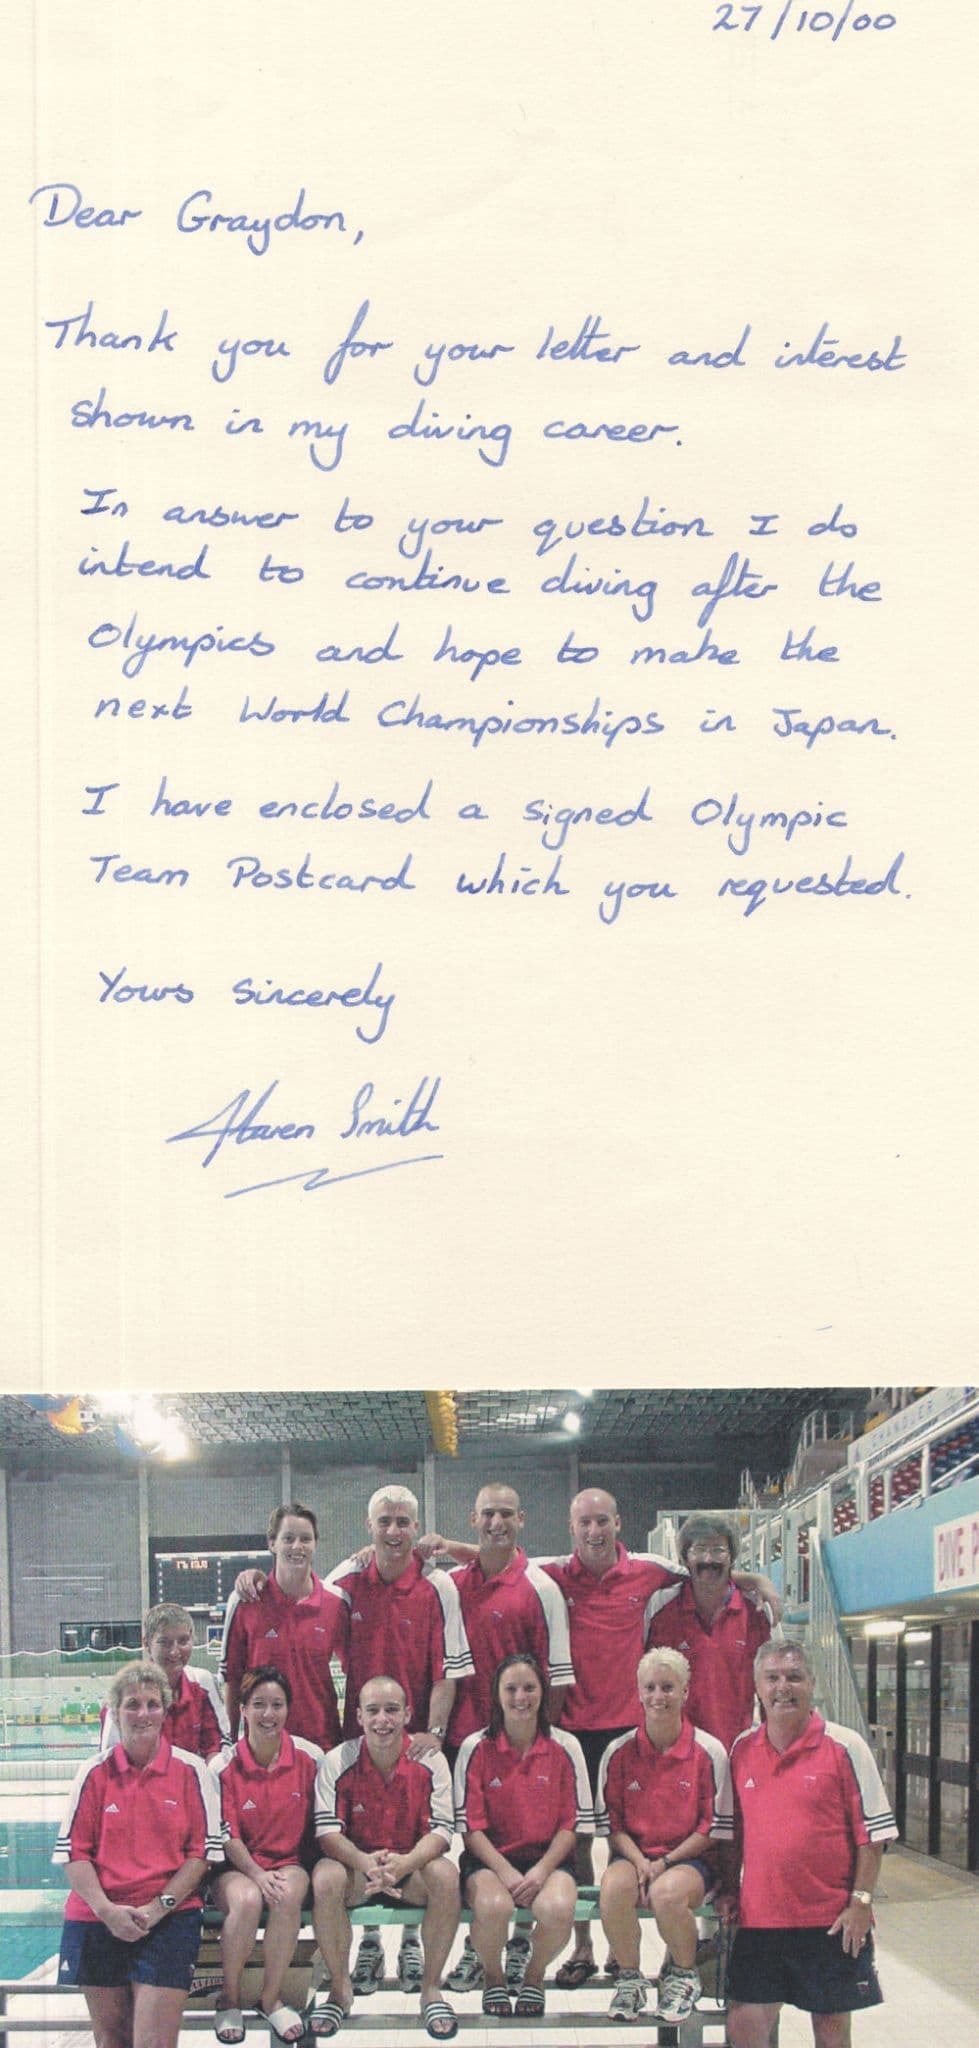 27/10/00
Dear Graydon,
Thank you for your letter and interest
shown in my diving career.
In answer to your question I do
intend to continue diving after the
Olympics and hope to make the
next World Championships in Japan.
I have enclosed a signed Olympic
Team Postcard which you requested.
Yours Sincerely
Karen Smith
CHANDLER
DIVE